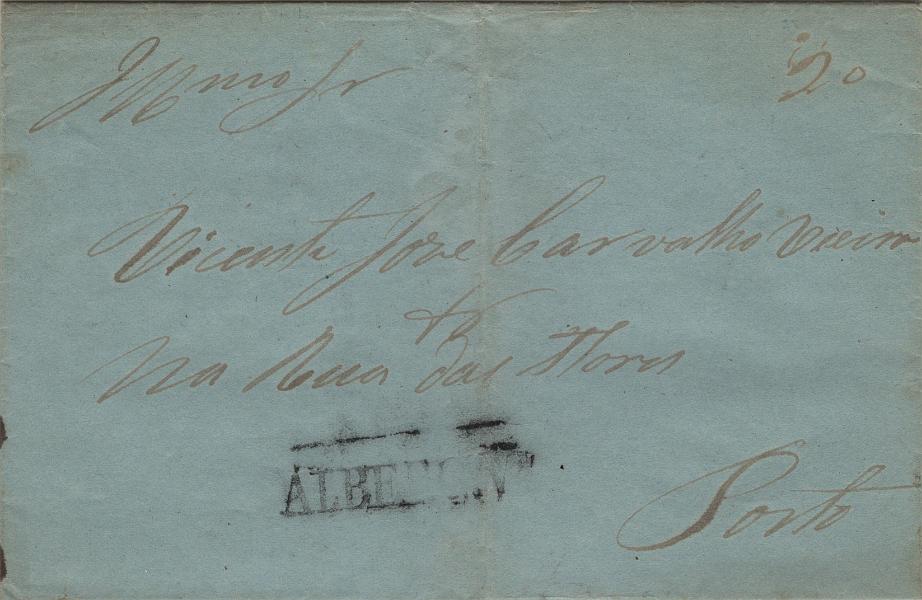 Illmo Sr
20
Vicente Jose Carvalho Vieira
Na Rua das Flores
Porto